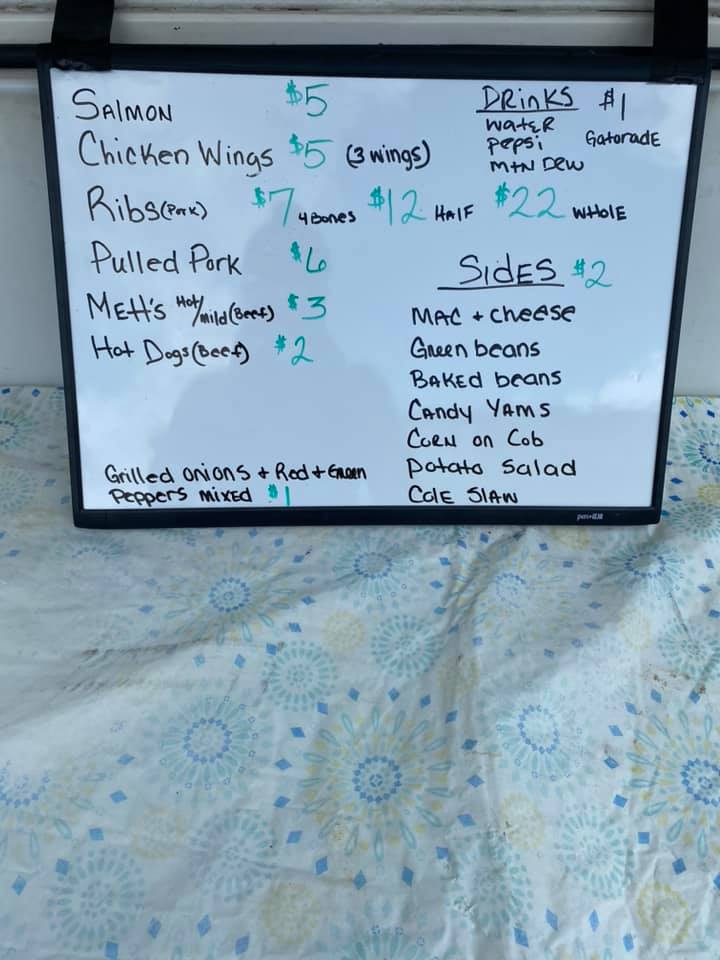 SALMON $5
Chicken Wings $5 (3 wings)
Ribs (Pork) $7 4 Bones $12 HAlF $22 WHolE
Pulled Pork $6
MEtt's Hot/mild (Beef) $3
Hot Dogs (Beef) $2
Grilled onions + Red + GREEN
Peppers mixed $1
DRinKS $1
WatER
PEPSi GatoradE
MtN DEW
SidES $2
MAC + cheese
Green beans
BAKEd beans
CANdy YAMS
CoRN on Cob
Potato Salad
ColE SlAW